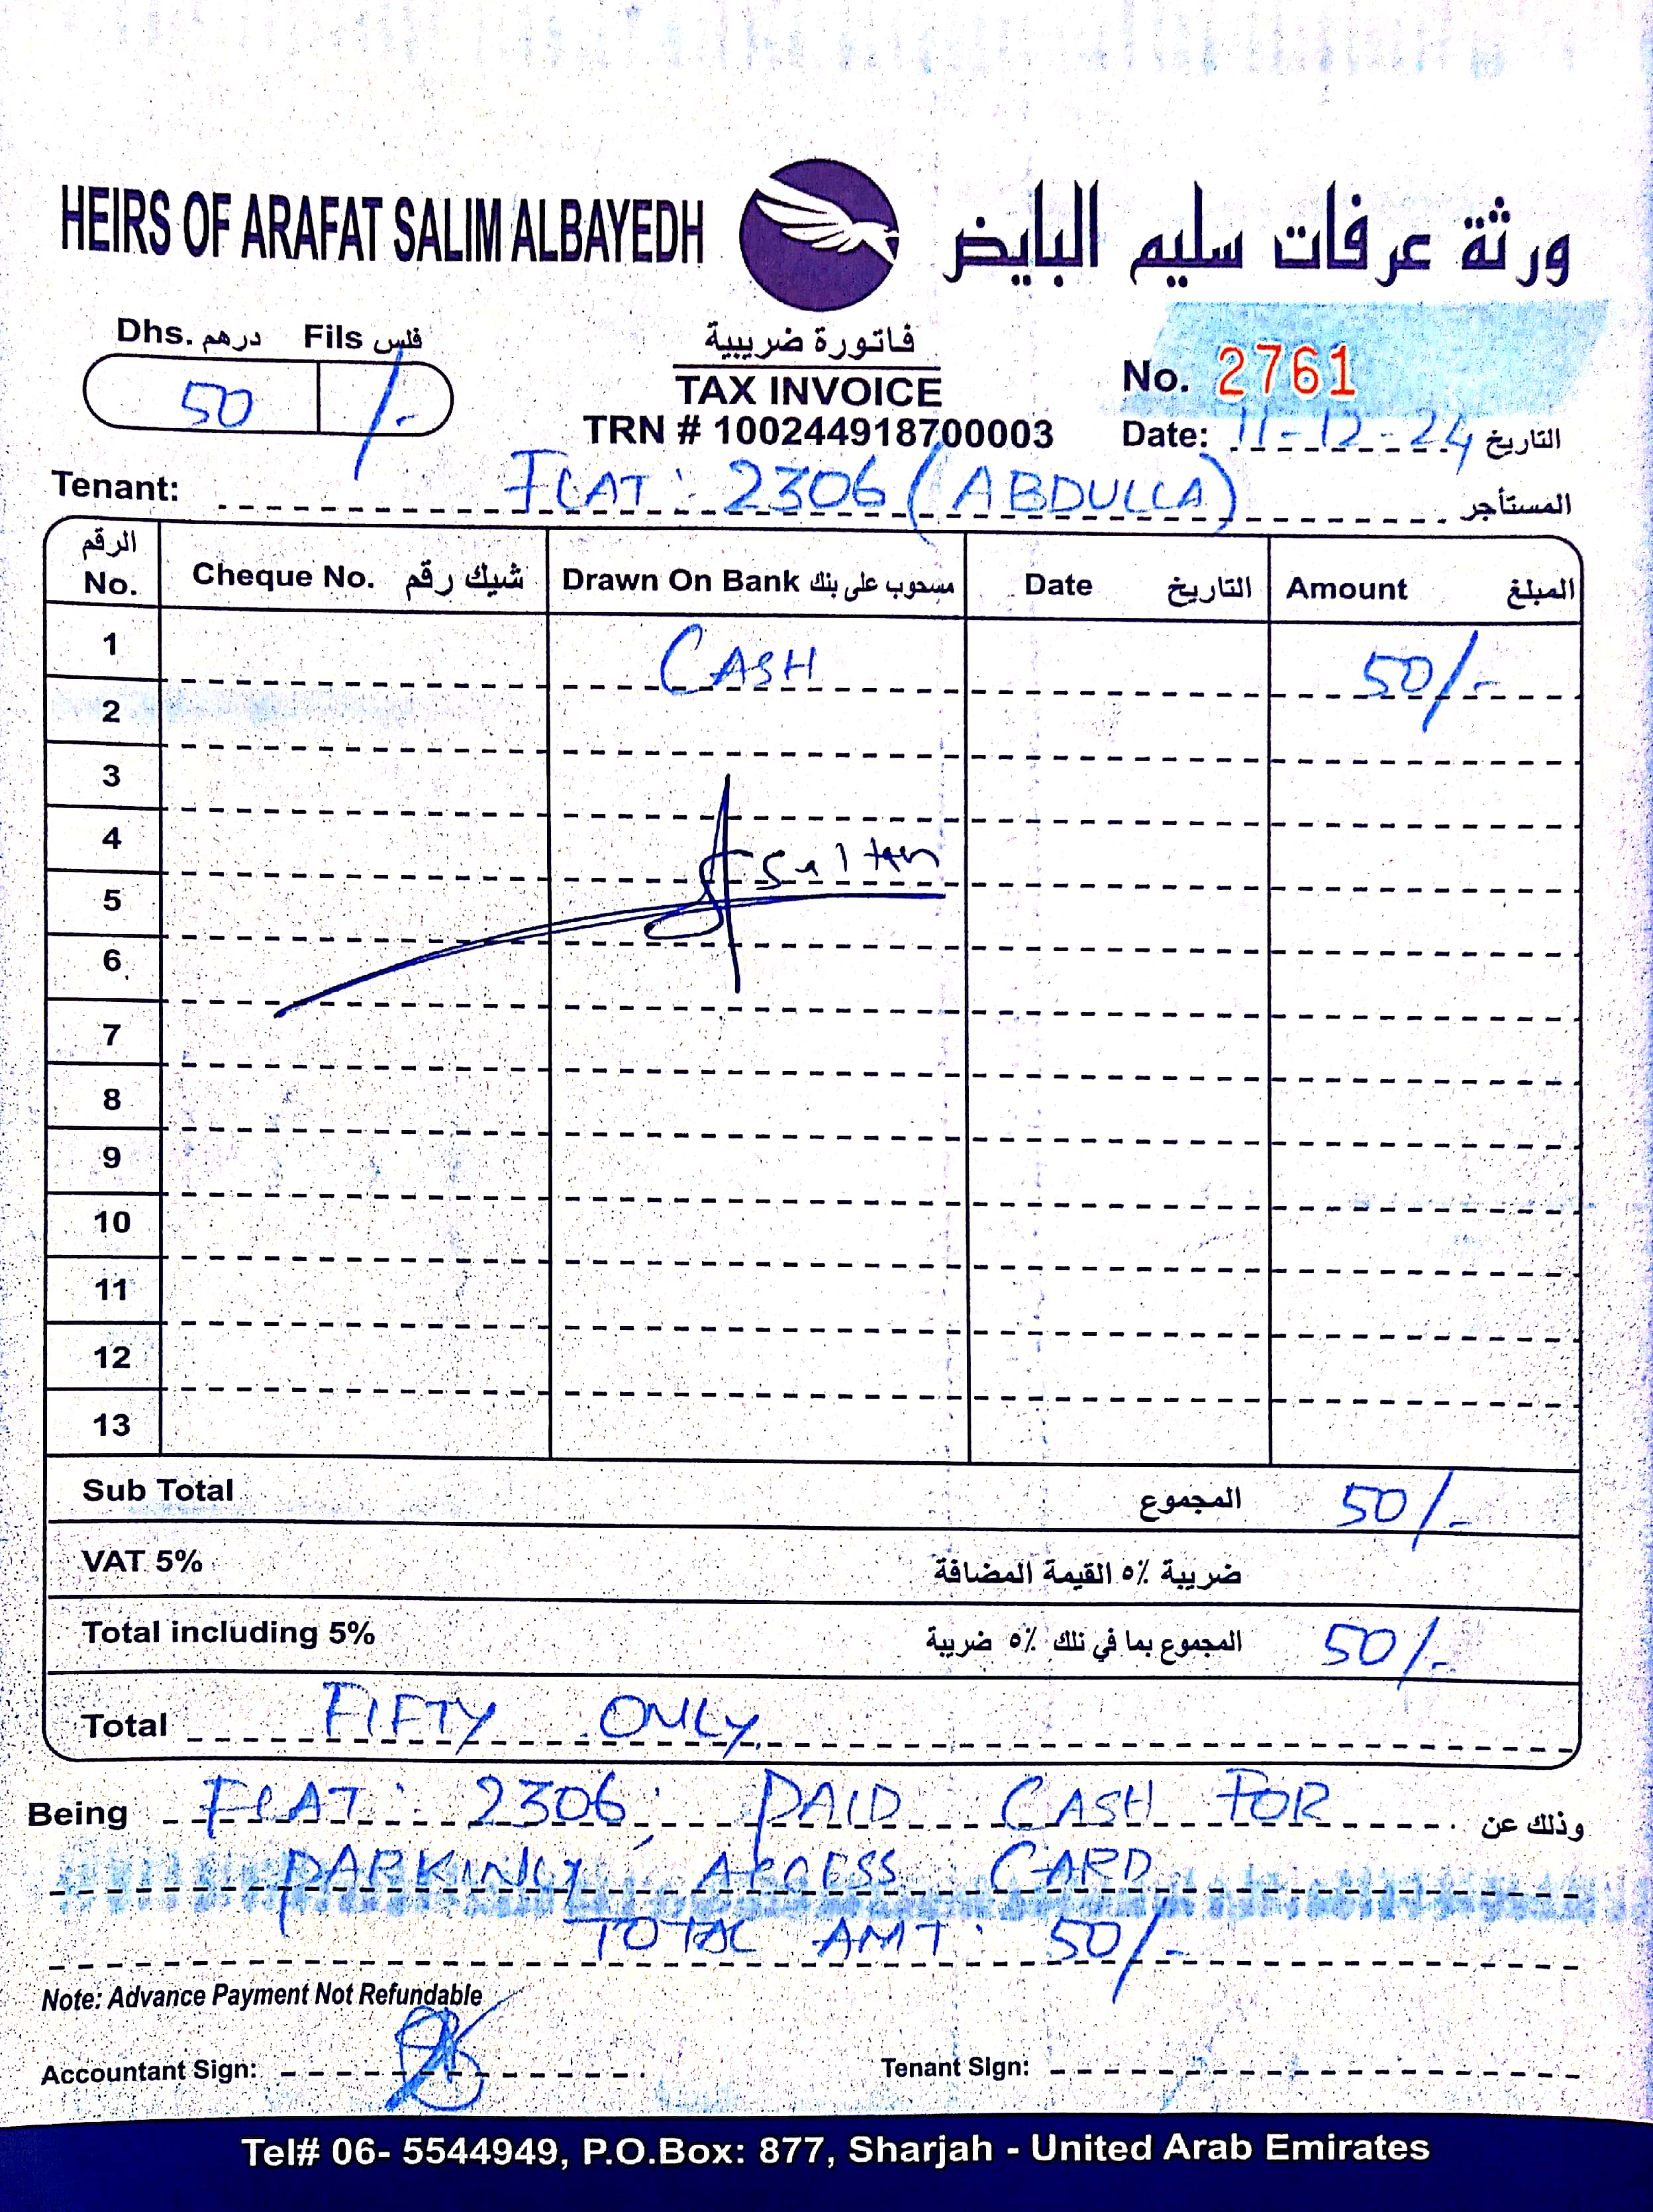 HEIRS OF ARAFAT SALIM ALBAYEDH ورثة عرفات سليم البايض
Dhs. درهم Fils فلس
50 /-
فاتورة ضريبية
TAX INVOICE
TRN # 100244918700003
No. 2761
Date: 11-12-24 التاريخ
Tenant: FLAT: 2306 (ABDULLA) المستأجر
الرقم No. Cheque No. شيك رقم Drawn On Bank مسحوب على بنك Date التاريخ Amount المبلغ
1 CASH 50/-
2
3
4 Sultan
5
6
7
8
9
10
11
12
13
Sub Total المجموع 50/-
VAT 5% ضريبة ٥٪ القيمة المضافة
Total including 5% المجموع بما في تلك ٥٪ ضريبة 50/-
Total FIFTY ONLY.
Being FLAT: 2306; PAID CASH FOR وذلك عن
PARKING ACCESS CARD,
TOTAL AMT: 50/-
Note: Advance Payment Not Refundable
Accountant Sign: Tenant SIgn:
Tel# 06- 5544949, P.O.Box: 877, Sharjah - United Arab Emirates